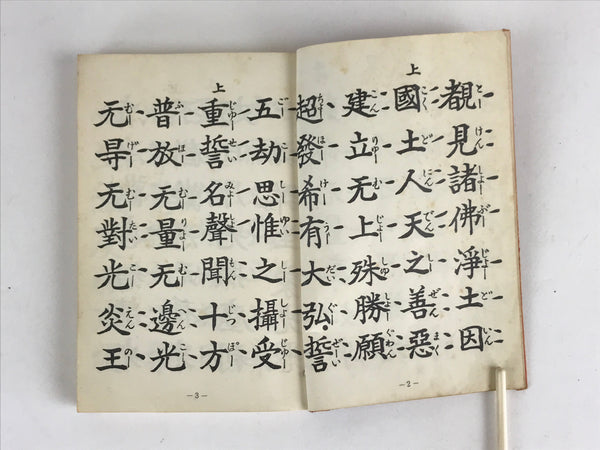 上
覩見諸佛淨土因
國土人天之善惡
建立无上殊勝願
超發希有大弘誓
-2-
上
五劫思惟之攝受
重誓名聲聞十方
普放无量无邊光
无㝵无對光炎王
-3-